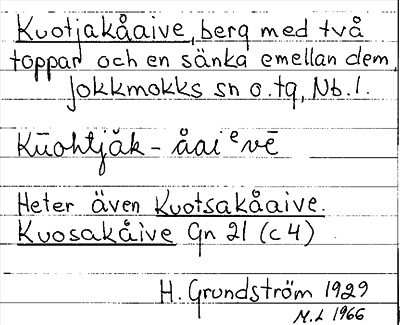 Kuotjakåaive, berg med två
toppar och en sänka emellan dem,
Jokkmokks sn o. tg, Nb. l.
Kūohtjåk - åaiᵉvē
Heter även Kuotsakåaive.
Kuosakåive Gn 21 (c4)
H. Grundström 1929
M.L 1966